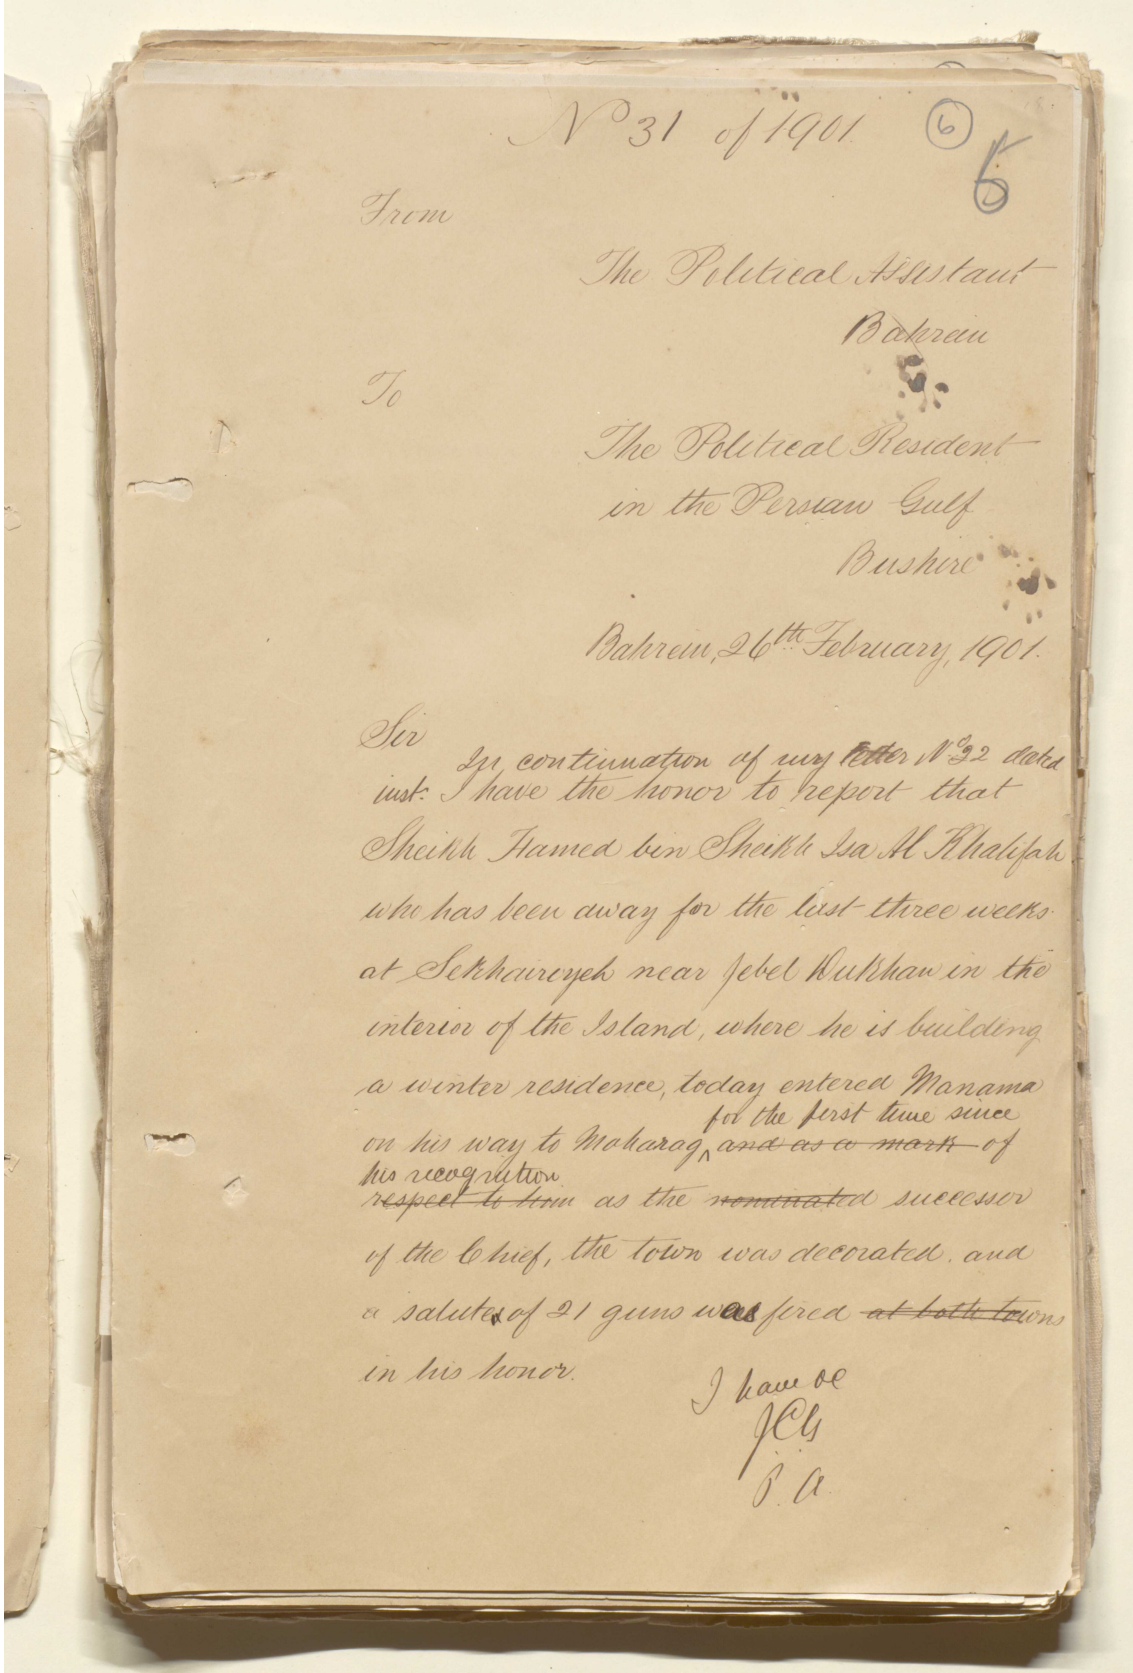 Nº 31 of 1901.
6
5
From
The Political Assistant
Bahrein
To
The Political Resident
in the Persian Gulf
Bushire
Bahrein, 26th February, 1901.
Sir
In continuation of my letter Nº 22 dated
inst: I have the honor to report that
Sheikh Hamed bin Sheikh Isa Al Khalifah
who has been away for the last three weeks
at Sekhaireyeh near Jebel Dukhan in the
interior of the Island, where he is building
a winter residence, today entered Manama
for the first time since
on his way to Moharag, and as a mark of
his recognition
respect to him as the nominated successor
of the Chief, the town was decorated and
a salute of 21 guns was fired at both towns
in his honor.
I have &c
P. A.